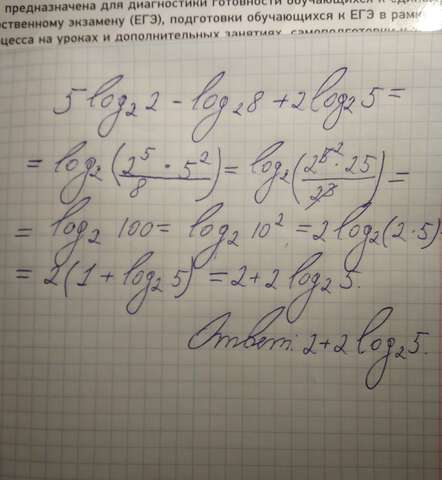 предназначена для диагностики готовности обучающихся к
экзамену (ЕГЭ), подготовки обучающихся к ЕГЭ в
на уроках и дополнительных занятиях, самоподготовки
5 log₂ 2 - log₂ 8 + 2 log₂ 5 =
= log₂ (2⁵ · 5² / 8) = log₂ (2⁵ ² · 25 / 2³) =
= log₂ 100 = log₂ 10² = 2 log₂ (2 · 5)
= 2 (1 + log₂ 5) = 2 + 2 log₂ 5.
Ответ: 2 + 2 log₂ 5.